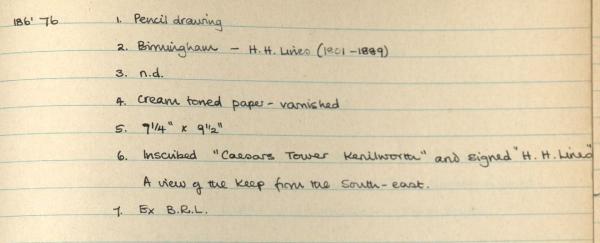 186' 76 1. Pencil drawing
2. Birmingham - H.H. Lines (1801-1889)
3. n.d.
4. Cream toned paper - varnished
5. 7 1/4" x 9 1/2"
6. Inscribed "Caesars Tower Kenilworth" and signed "H.H. Lines"
A view of the Keep from the South-east.
7. Ex B.R.L.